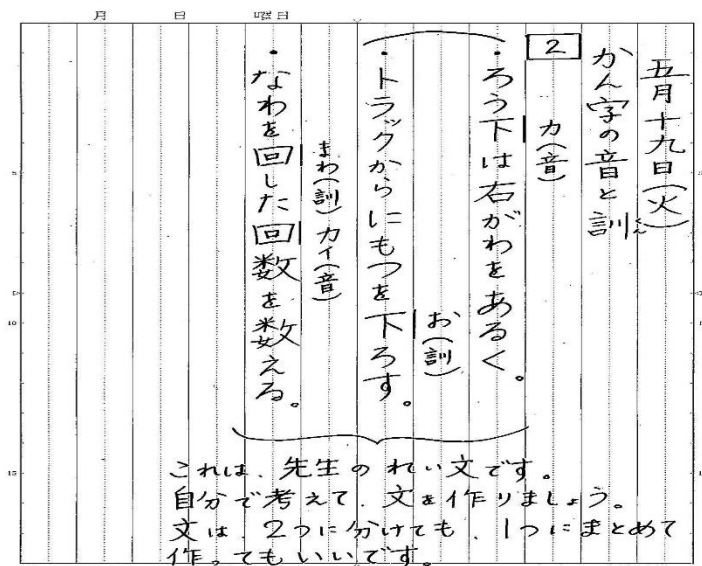 月 日 曜日
五月十九日(火)
かん字の音と訓くん
2
カ(音)
・ろう下は右がわをあるく。
お(訓)
・トラックからにもつを下ろす。
まわ(訓) カイ(音)
・なわを回した回数を数える。
これは、先生のれい文です。
自分で考えて、文を作りましょう。
文は、2つに分けても、1つにまとめて
作ってもいいです。
5
10
15